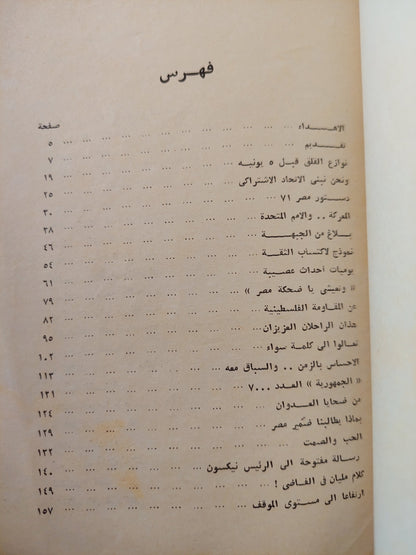 فهرس
صفحة
الاهداء ... ٥
تقديم ... ٧
نوازع القلق قبل ٥ يونيه ... ١٩
ونحن نبنى الاتحاد الاشتراكى ... ٢٥
دستور مصر ٧١ ... ٣٠
المعركة .. والامم المتحدة ... ٣٨
بلاغ من الجبهة ... ٤٦
نموذج لاكتساب الثقة ... ٥٤
يوميات أحداث عصيبة ... ٦١
« وتعيشى يا ضحكة مصر » ... ٧٩
عن المقاومة الفلسطينية ... ٨٢
هذان الراحلان العزيزان ... ٩٥
تعالوا الى كلمة سواء ... ١٠٢
الاحساس بالزمن .. والسباق معه ... ١١٣
« الجمهورية » العدد ٧٠٠٠ ... ١٢١
من ضحايا العدوان ... ١٢٤
بماذا يطالبنا ضمير مصر ... ١٢٩
الحب والصمت ... ١٣٢
رسالة مفتوحة الى الرئيس نيكسون ... ١٤٠
كلام مليان فى الفاضى ! ... ١٤٩
ارتفاعا الى مستوى الموقف ... ١٥٧